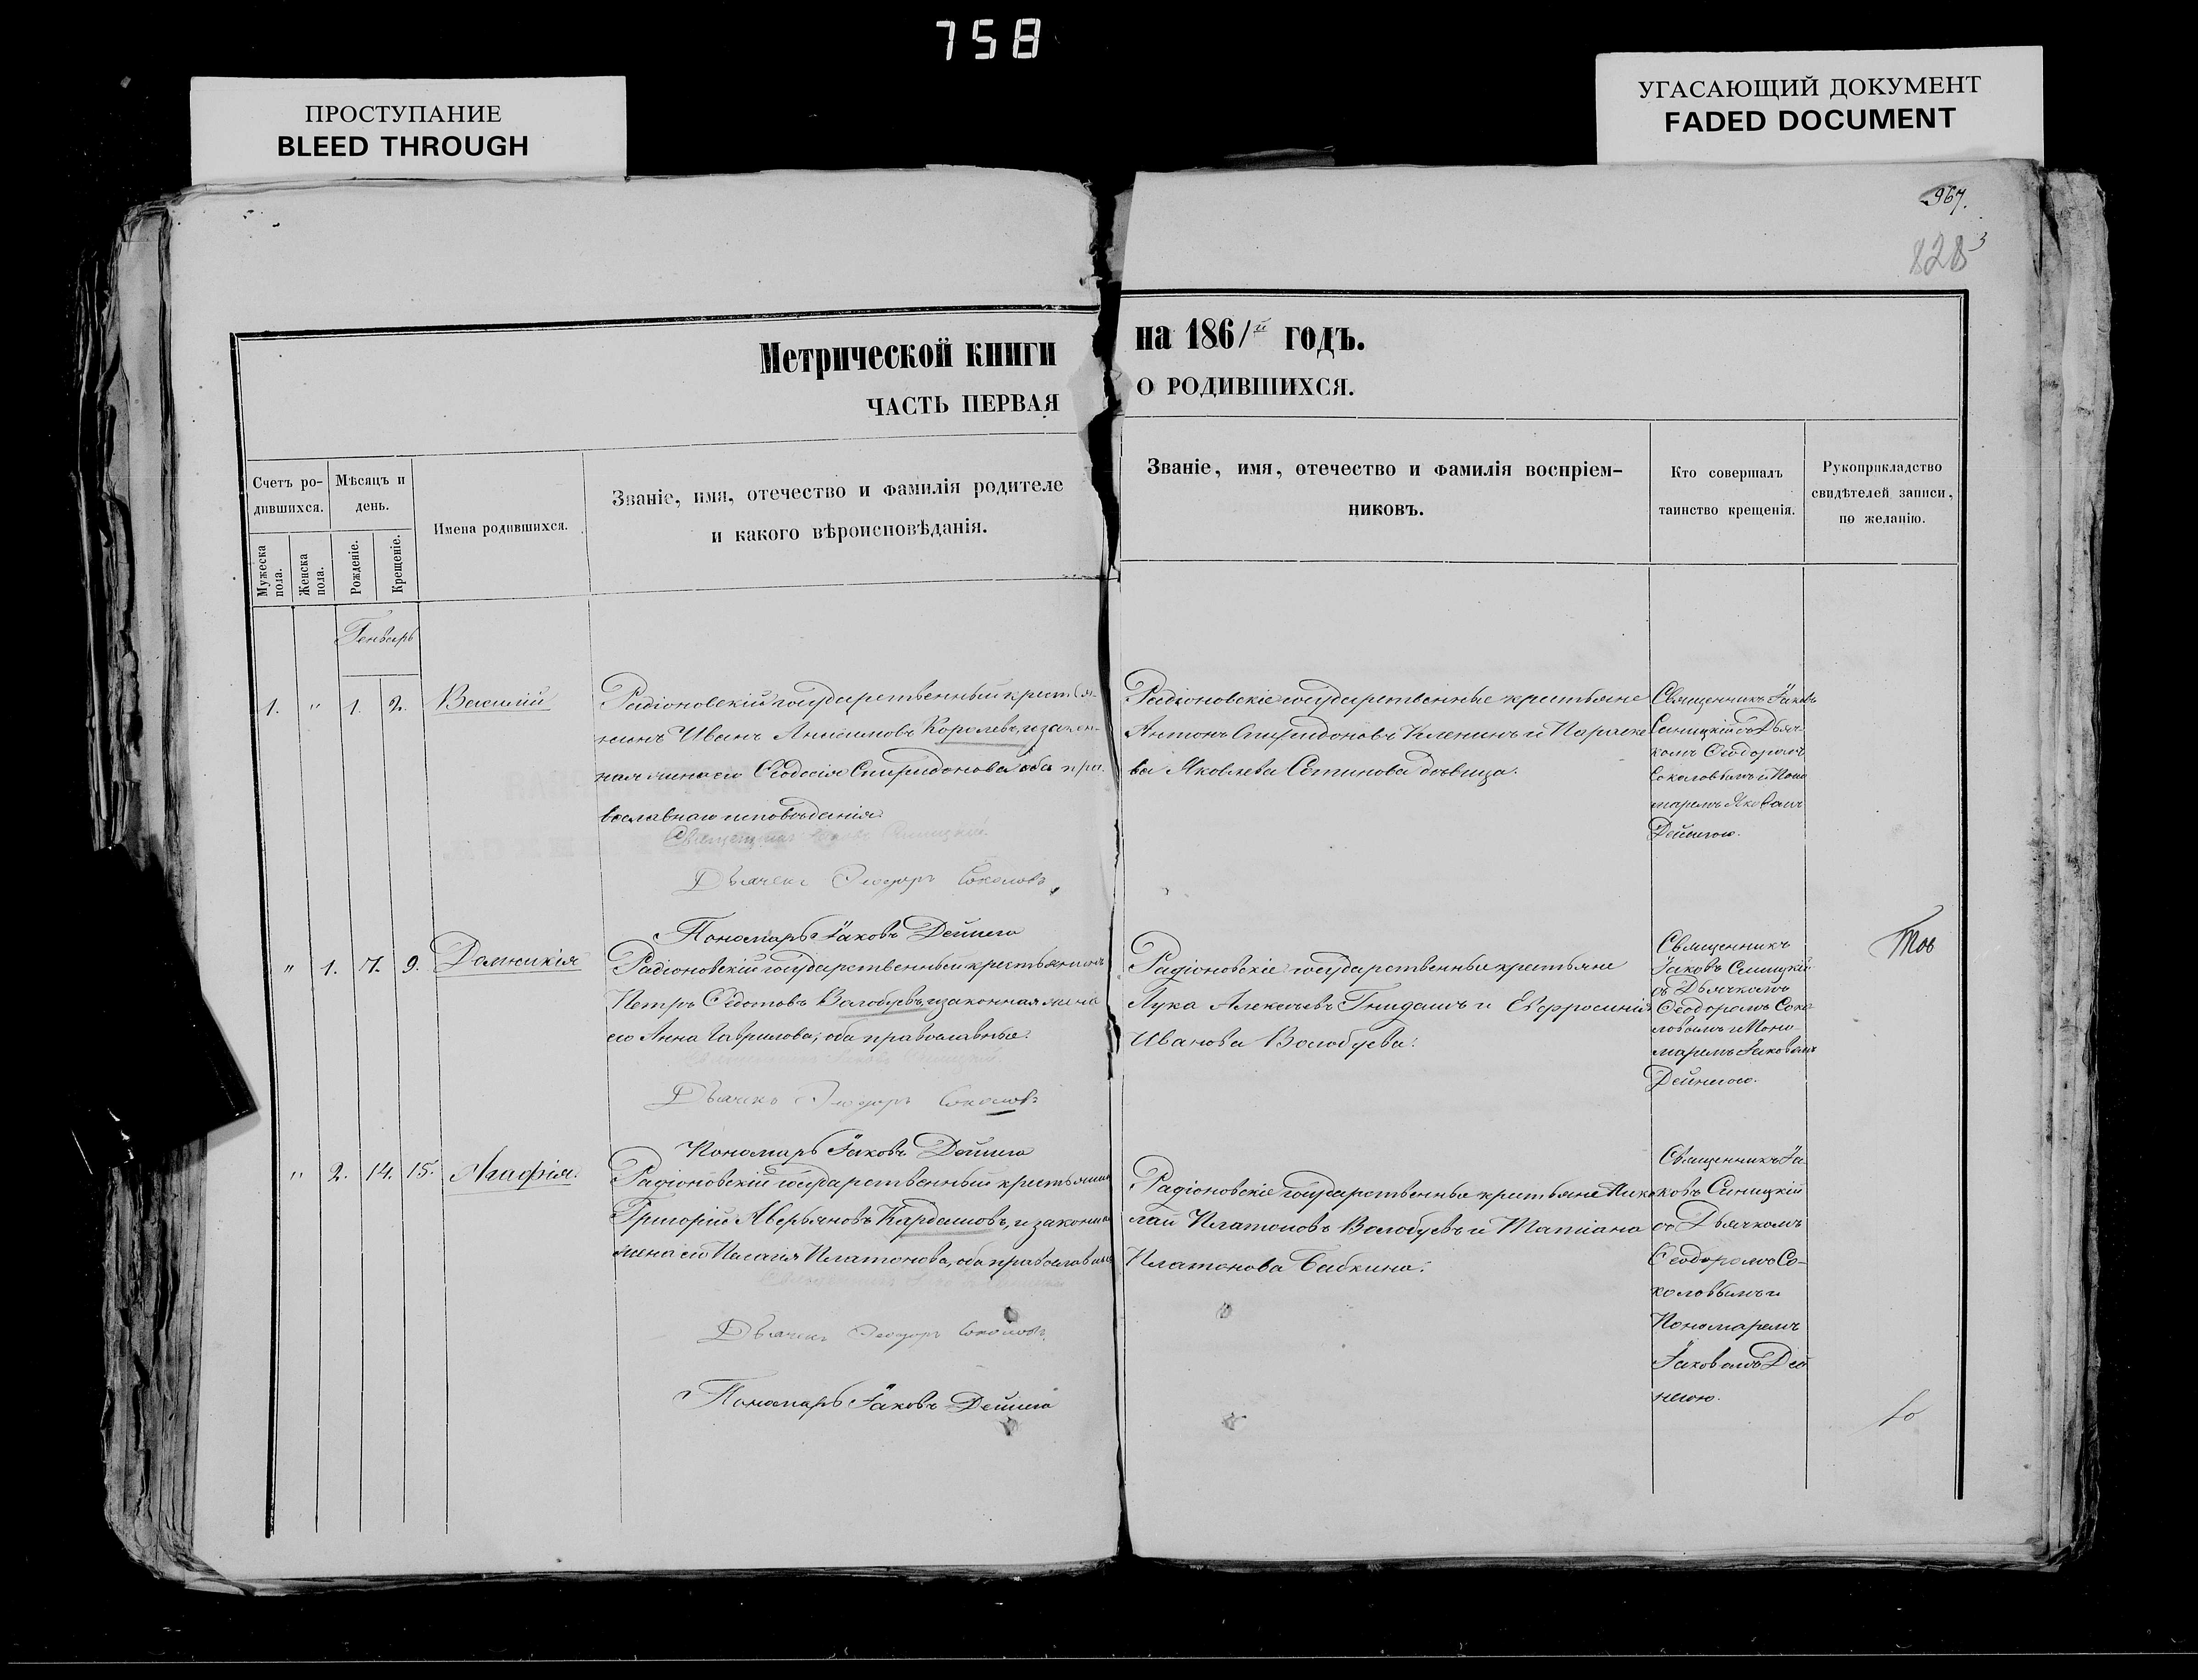 758
ПРОСТУПАНИЕ
BLEED THROUGH
УГАСАЮЩИЙ ДОКУМЕНТ
FADED DOCUMENT
967.
828
3
Метрической книги на 1861й годъ.
ЧАСТЬ ПЕРВАЯ О РОДИВШИХСЯ.
Счетъ ро-
дившихся.
Мужеска пола.
Женска пола.
Мѣсяцъ и
день.
Рожденіе.
Крещеніе.
Имена родившихся.
Званіе, имя, отечество и фамилія родителе
и какого вѣроисповѣданія.
Званіе, имя, отечество и фамилія воспріем-
никовъ.
Кто совершалъ
таинство крещенія.
Рукоприкладство
свидѣтелей записи,
по желанію.
Генварь
1. " 1. 2. Василій
Радіоновскій государственный крестья-
нинъ Иванъ Анисимовъ Королевъ, и закон-
ная жена его Ѳеодосія Спиридонова оба пра-
вославнаго исповѣданія.
Священникъ Іаковъ Синицкій
Дьячекъ Ѳеодоръ Соколовъ
Пономарь Іаковъ Дейнега
Радіоновскіе государственные крестьяне
Антонъ Спиридоновъ Кленинъ и Параске
ва Яковлева Сотникова дѣвица.
Священникъ Іаковъ
Синицкій съ Дьяч-
комъ Ѳеодоромъ
Соколовымъ и Поно
маремъ Яковомъ
Дейнегою.
" 1. 7. 9. Домникія
Радіоновскій государственный крестьянинъ
Петръ Ѳедотовъ Волобуевъ, и законная жена
его Анна Гаврилова, оба православные.
Дьячекъ Ѳеодоръ Соколовъ
Пономарь Іаковъ Дейнега
Радіоновскіе государственные крестьяне
Лука Алексѣевъ Гнидашъ и Евфросинія
Иванова Волобуева.
Священникъ
Іаковъ Синицкій
съ Дьячкомъ
Ѳеодоромъ Соко
ловымъ и Поно-
маремъ Іаковомъ
Дейнегою.
" 2. 14. 15. Агафія.
Радіоновскій государственный крестьянинъ
Григорій Аверьяновъ Кардашовъ, и законная
жена его Пелагія Платонова, оба православные
Дьячекъ Ѳеодоръ Соколовъ
Пономарь Іаковъ Дейнега
Радіоновскіе государственные крестьяне Нико
лай Платоновъ Волобуевъ и Татіана
Платонова Бабкина.
Священникъ Іа
ковъ Синицкій
съ Дьячкомъ
Ѳеодоромъ Со-
коловымъ и
Пономаремъ
Іаковомъ Дей
негою.